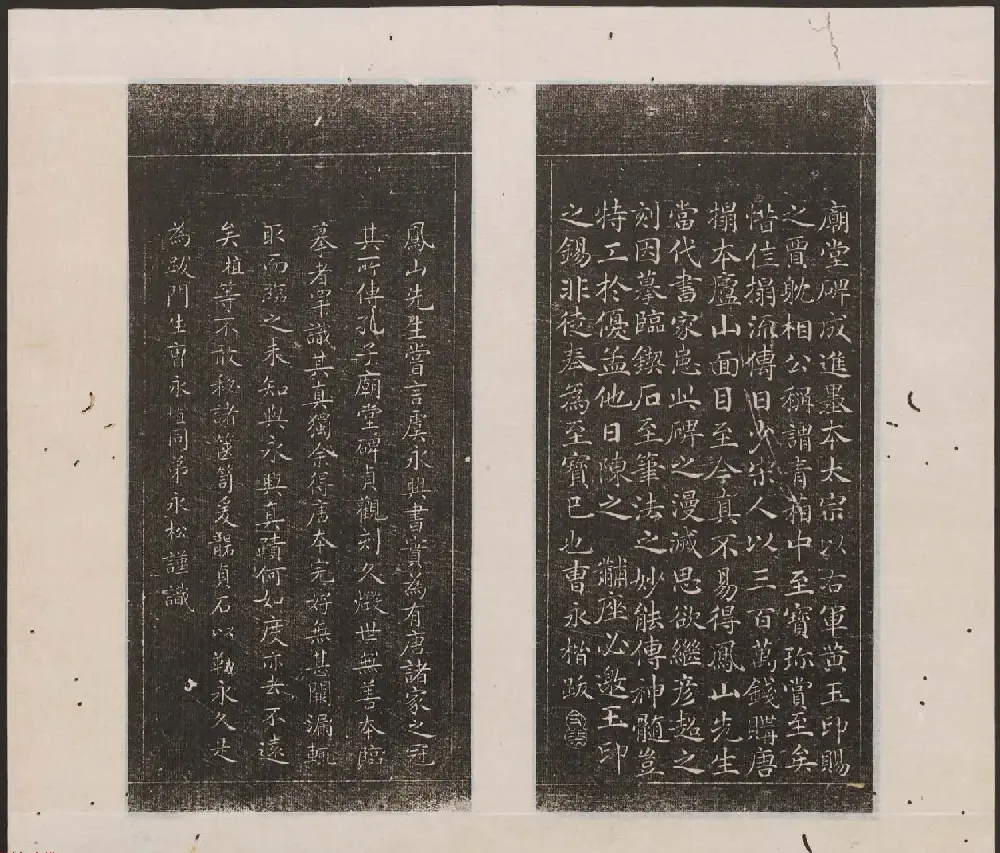 廟堂碑成進墨本太宗以右軍黃玉印賜
之賈躭相公稱謂青箱中至寶珎賞至矣
惜佳搨流傳日少宋人以三百萬錢購唐
搨本廬山面目至今真不易得鳳山先生
當代書家崑此碑之漫滅思欲繼彥超之
刻因摹臨鍥石至筆法之妙能傳神髓豈
特工於優孟他日陳之 黼座必邀王印
之錫非徒奉為至寶已也曹永楷跋
鳳山先生嘗言虞永興書實為有唐諸家之冠
其所傳孔子廟堂碑貞觀刻久燬世無善本臨
摹者罕識其真獨余得唐本完好無甚闕漏輒
取而臨之未知與永興真蹟何如度亦去不遠
矣植等不敢秘諸篋笥爰勒貞石以勒永久是
為跋門生曹永植同弟永松謹識